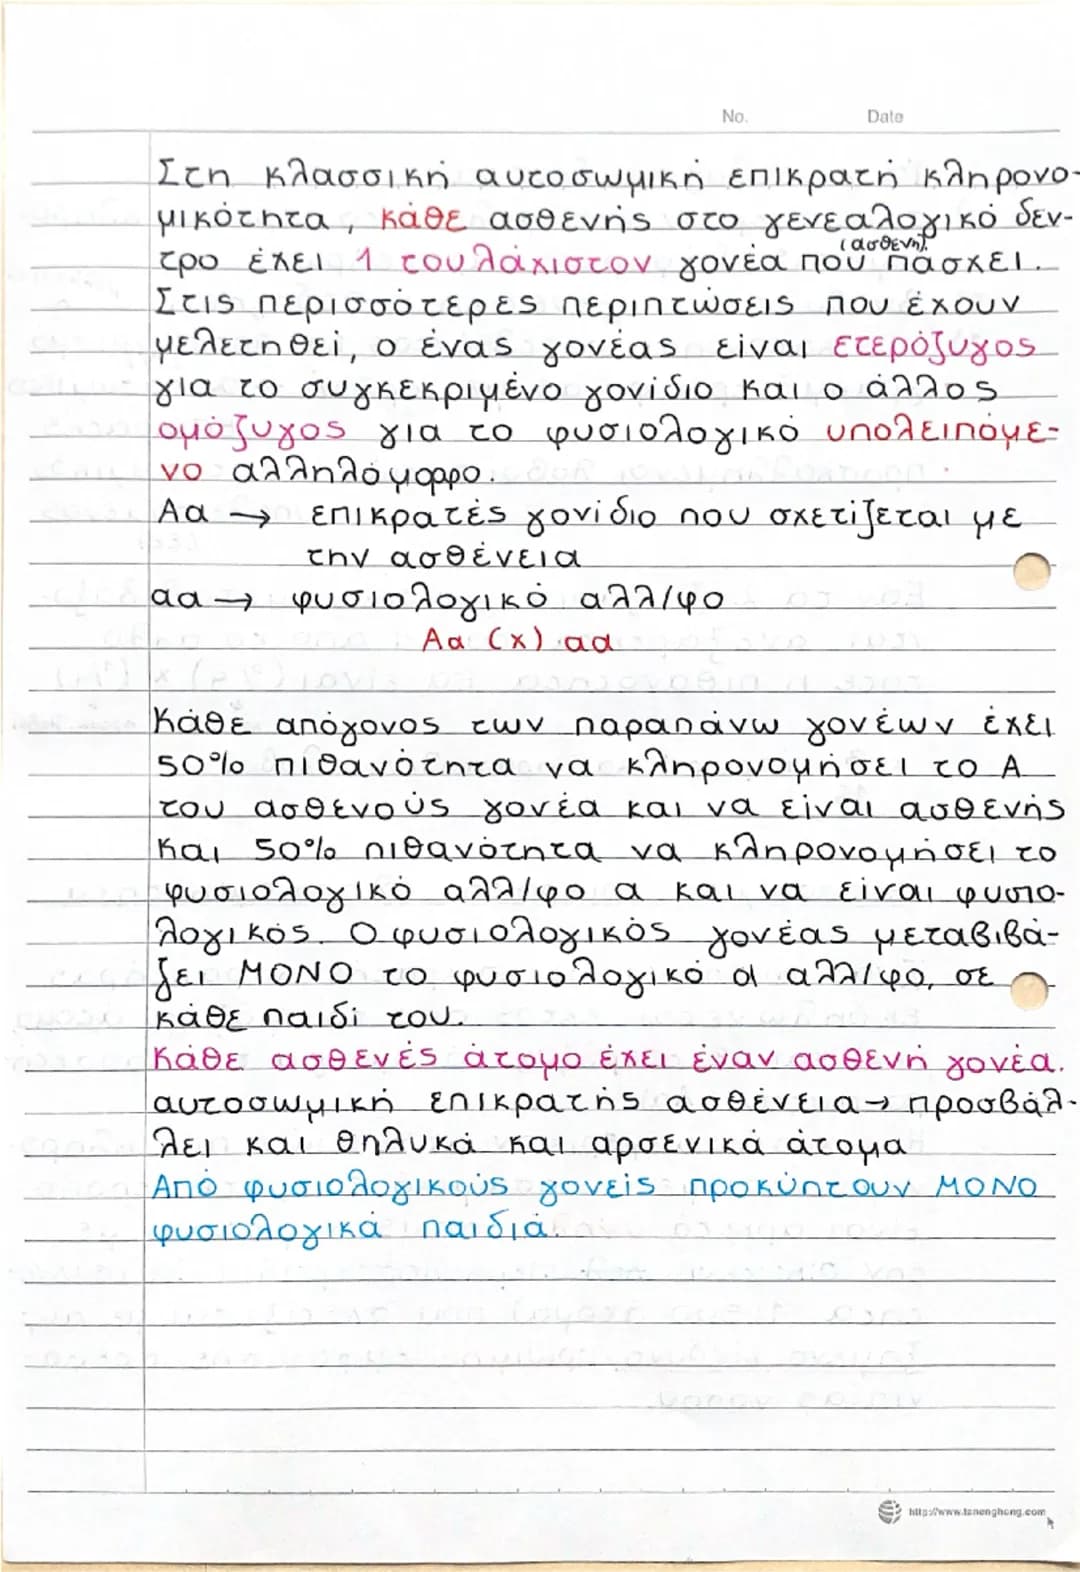 No. Date
Στη κλασσική αυτοσωμική επικρατή κληρονο-
μικότητα, κάθε ασθενής στο γενεαλογικό δεν-
(ασθενή).
τρο έχει 1 τουλάχιστον γονέα που πάσχει.
Στις περισσότερες περιπτώσεις που έχουν
μελετηθεί, ο ένας γονέας είναι ετερόζυγος
για το συγκεκριμένο γονίδιο και ο άλλος
ομόζυγος για το φυσιολογικό υπολειπόμε-
νο αλληλόμορφο.
Αα → επικρατές γονίδιο που σχετίζεται με
την ασθένεια
αα → φυσιολογικό αλλ/φο
Αα (x) αα
Κάθε απόγονος των παραπάνω γονέων έχει
50% πιθανότητα να κληρονομήσει το Α
του ασθενούς γονέα και να είναι ασθενής
και 50% πιθανότητα να κληρονομήσει το
φυσιολογικό αλλ/φο α και να είναι φυσιο-
λογικός. Ο φυσιολογικός γονέας μεταβιβά-
ζει ΜΟΝΟ το φυσιολογικό α αλλ/φο, σε
κάθε παιδί του.
Κάθε ασθενές άτομο έχει έναν ασθενή γονέα.
αυτοσωμική επικρατής ασθένεια → προσβάλ-
λει και θηλυκά και αρσενικά άτομα
Από φυσιολογικούς γονείς προκύπτουν ΜΟΝΟ
φυσιολογικά παιδιά.
http://www.tanenghong.com